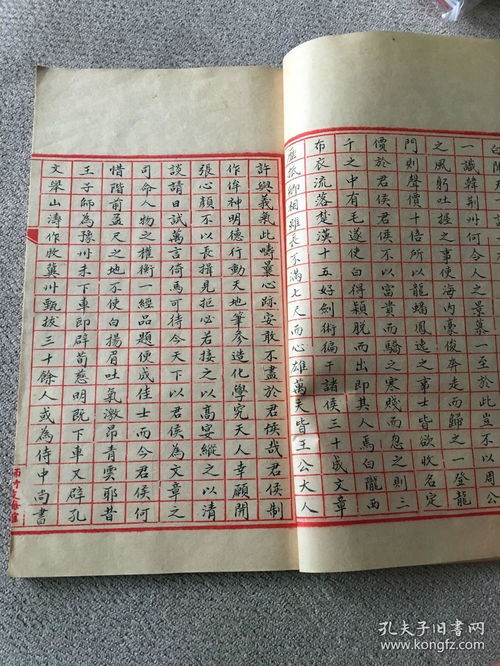 白聞
一識韓荊州何令人之景慕一至周公
之風躬吐握之事使海內豪俊奔走而歸之一登龍
門則聲價十倍所以龍蟠鳳逸之士皆欲收名定
價於君侯君侯不以富貴而驕之寒賤而忽之則三
千之中有毛遂使白得穎脫而出即其人焉白隴西
布衣流落楚漢十五好劍術徧干諸侯三十成文章
歷抵卿相雖長不滿七尺而心雄萬夫皆王公大人
許與義氣此疇曩心跡安敢不盡於君侯哉君侯制
作侔神明德行動天地筆參造化學究天人幸願開
張心顏不以長揖見拒必若接之以高宴縱之以清
談請日試萬言倚馬可待今天下以君侯為文章之
司命人物之權衡一經品題便成佳士而今君侯何
惜階前盈尺之地不使白揚眉吐氣激昂青雲耶昔
王子師為豫州未下車即辟荀慈明既下車又辟孔
文舉山濤作牧冀州甄拔三十餘人或為侍中尚書
孔夫子旧书网
www.kongfz.com